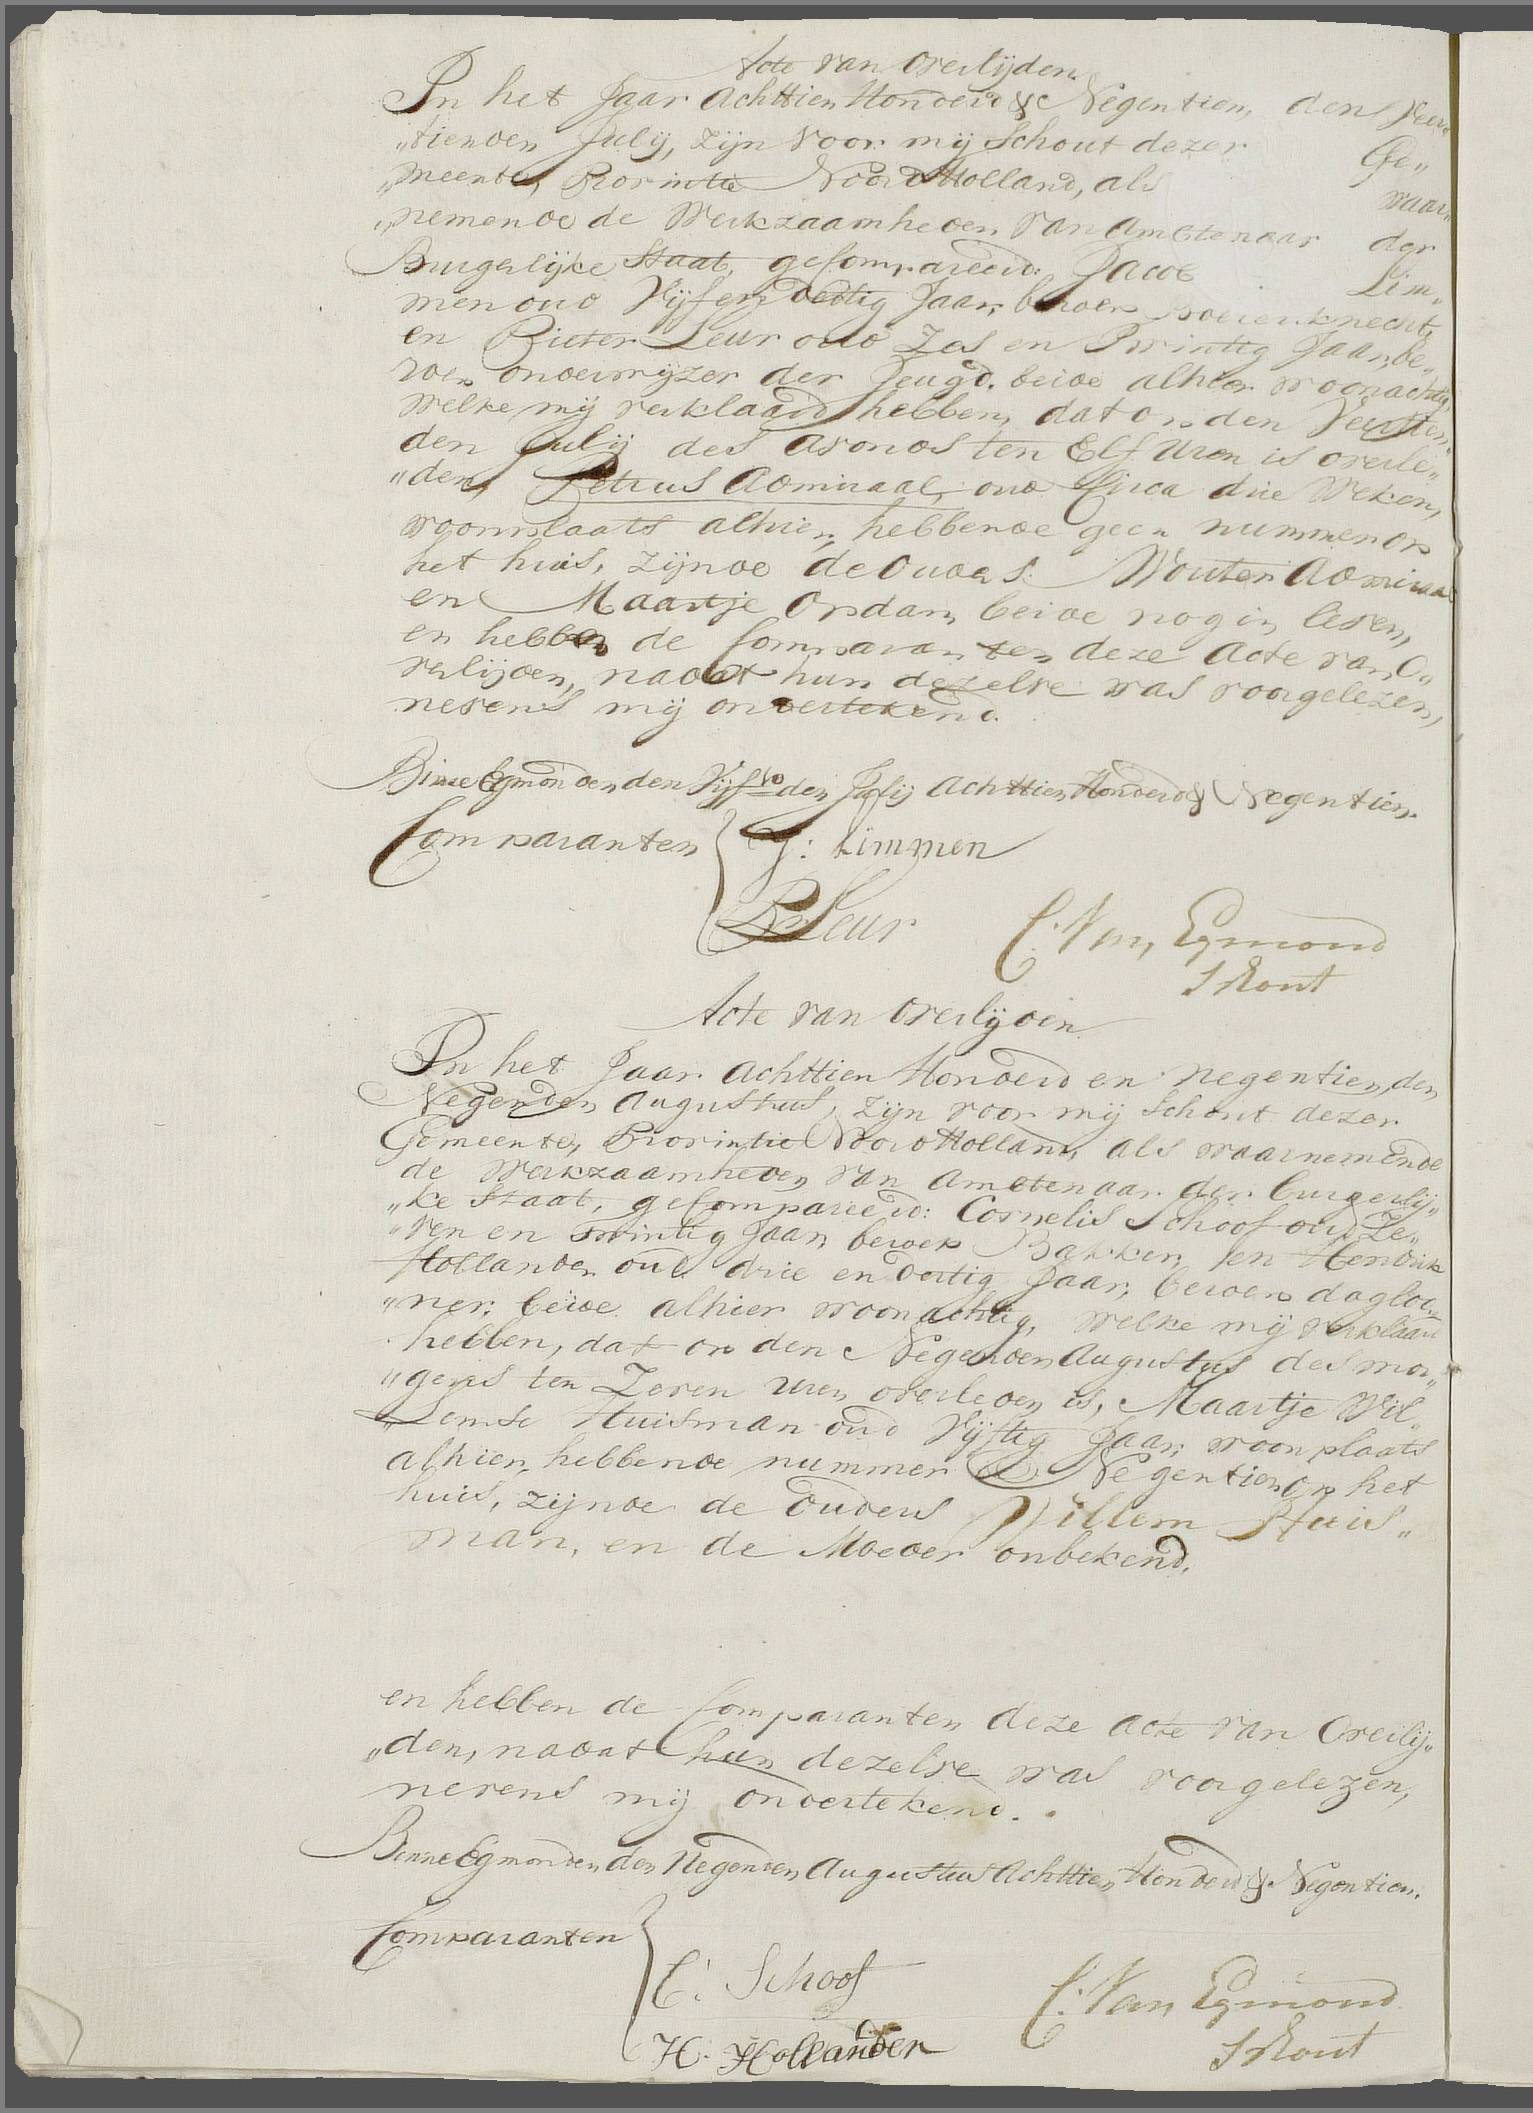 Acte van Overlijden.
In het Jaar Achttien Honderd & Negentien, den Veer„
„tienden Julij, zijn voor mij Schout dezer Ge„
„meente, Provintie Noord Holland, als waar„
„nemende de Werkzaamheden van Ambtenaar der
Burgerlijke Staat, gecompareerd: Jacob Lim„
men oud Vijf en dertig Jaar, beroep Boerenknecht,
en Pieter Leur oud Zes en Twintig Jaar, be„
roep onderwijzer der Jeugd. beide alhier woonachtig,
welke mij verklaard hebben, dat op den Veertien
den Julij des avonds ten Elf Uren is overle„
„den, Petrus Admiraal, oud Circa drie Weken,
woonplaats alhier, hebbende geen nummer op
het huis, zijnde de Ouders: Wouter Admiraal
en Maartje Opdam, beide nog in leven,
en hebben de Comparanten deze Acte van O„
verlijden, nadat hun dezelve was voorgelezen,
nevens mij ondertekend.
Binne Egmonden den Vijfden Julij Achttien Honderd & Negentien.
Comparanten { J: Limmen
Pr Leur
C. Van Egmond
Schout
Acte van Overlijden
In het Jaar Achttien Honderd en Negentien, den
Negenden Augustus, zijn voor mij Schout dezer
Gemeente, Provintie Noord Holland, als waarnemende
de Werkzaamheden van Ambtenaar der burgerlij„
„ke Staat, gecompareerd: Cornelis Schoof oud Ze„
„ven en Twintig Jaar, beroep Bakker, en Hendrik
Hollander oud drie en dertig Jaar, beroep dagloo„
„ner, beide alhier woonachtig, welke mij verklaard
hebben, dat op den Negenden Augustus des mor„
„gens ten Zeven Uren overleden is, Maartje Wil„
„lemse Huisman oud Vijftig Jaar, woonplaats
alhier, hebbende nummer Negentien op het
huis, zijnde de Ouders Willem Huis„
man, en de Moeder onbekend.
en hebben de Comparanten deze acte van Overlij„
„den, nadat hun dezelve was voorgelezen,
nevens mij ondertekend.
Binne Egmonden den Negenden Augustus Achttien Honderd & Negentien.
Comparanten {
C: Schoof
H. Hollander
C. Van Egmond
Schout